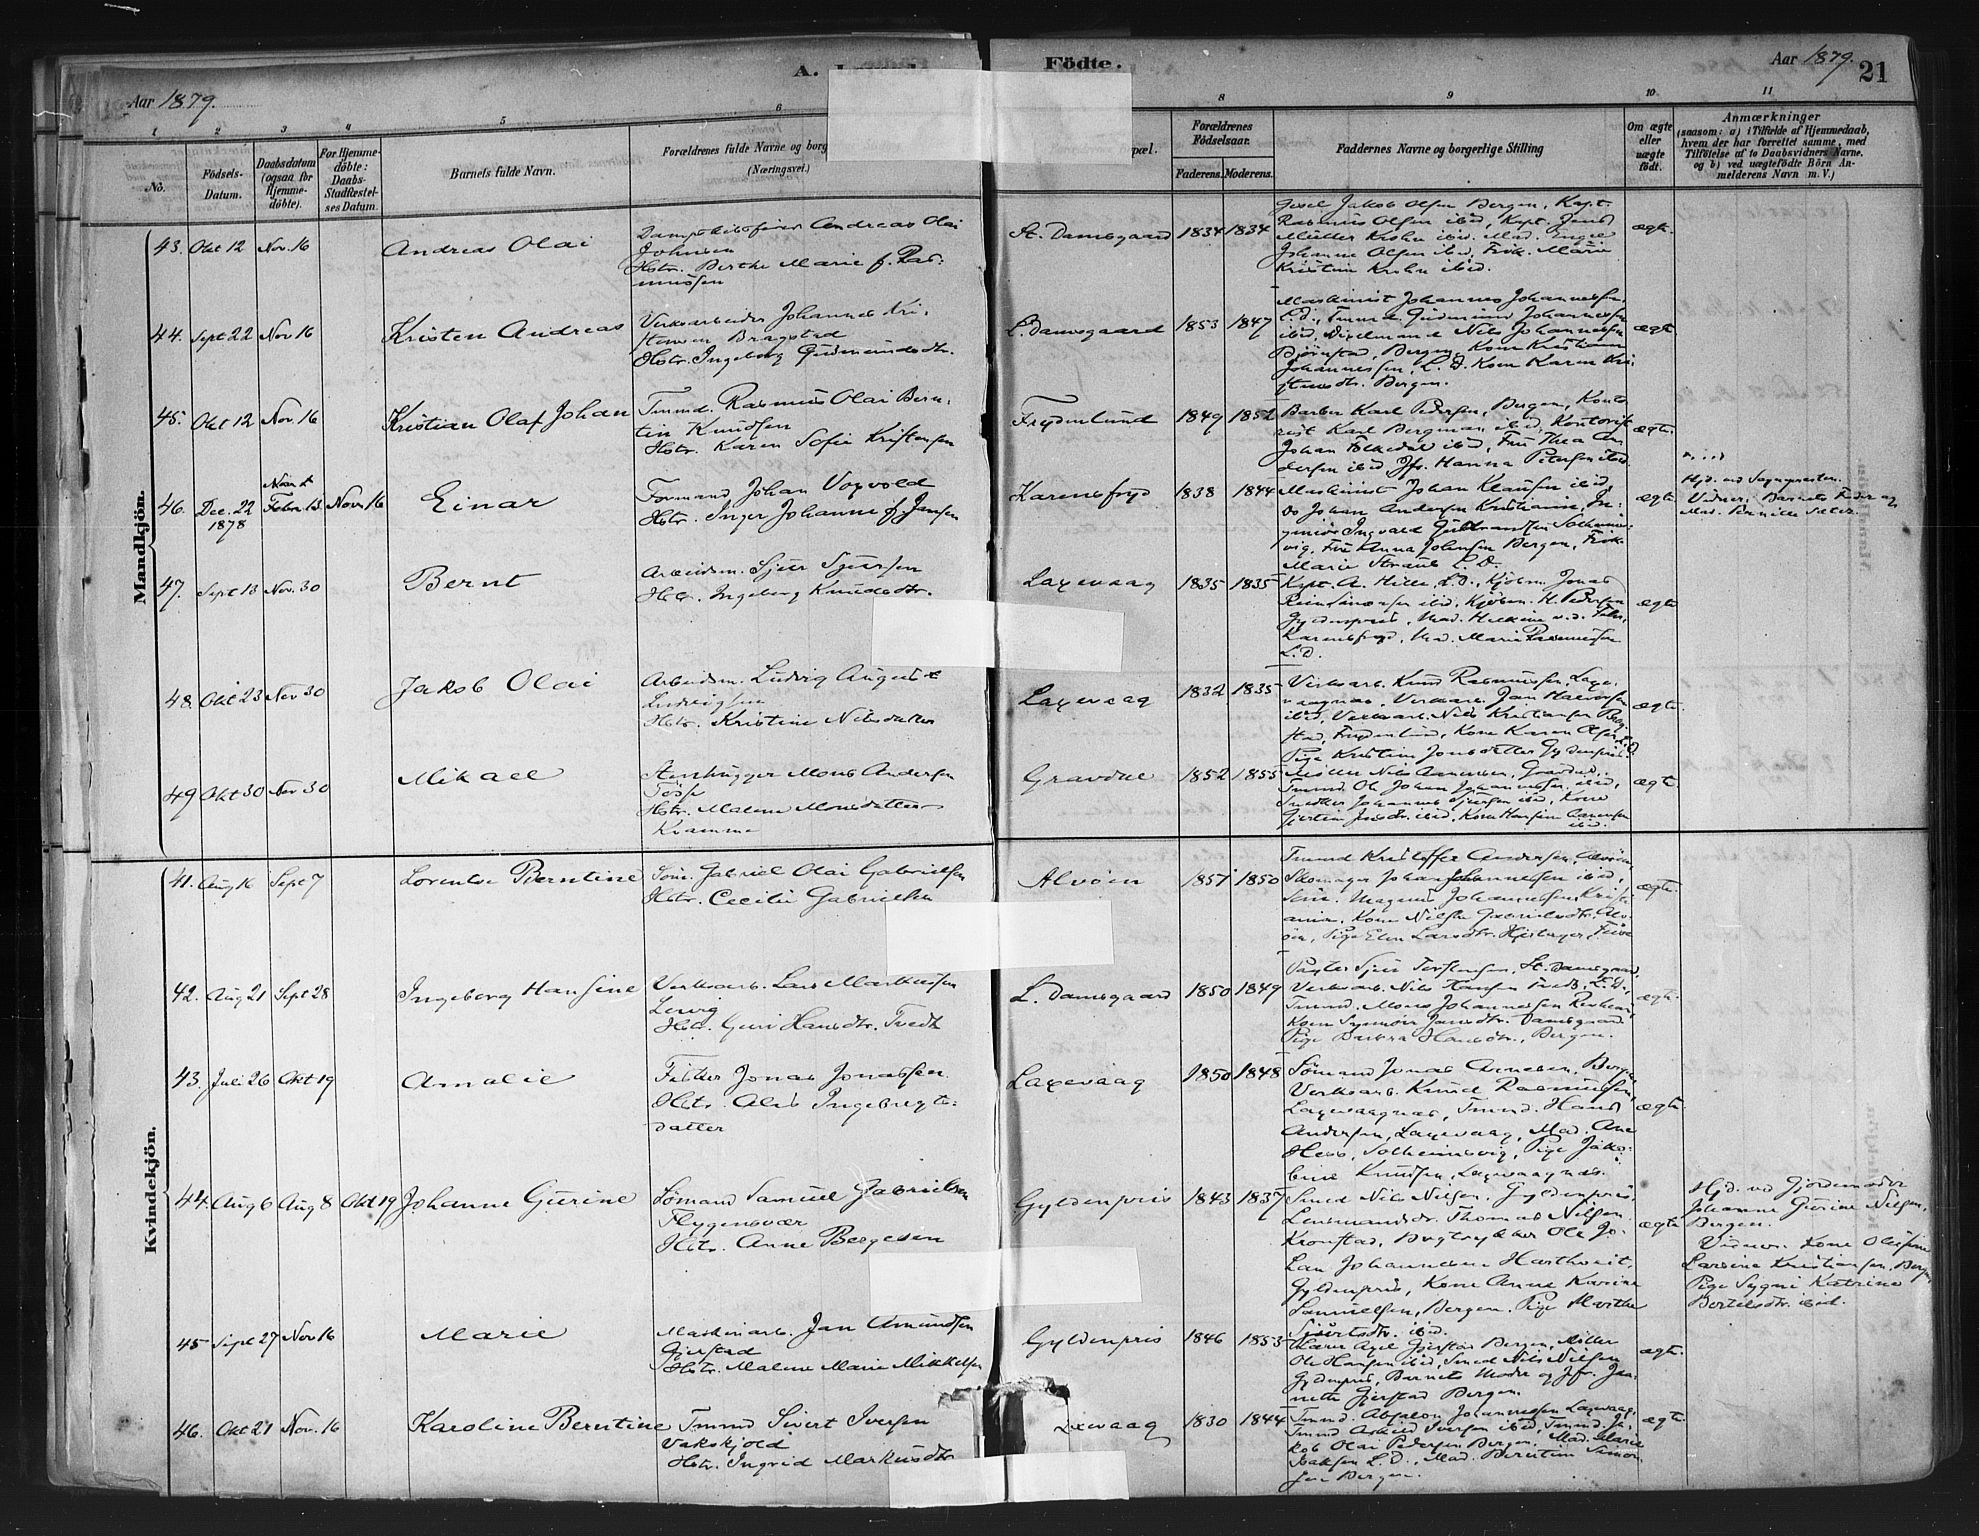 Aar 1879.
Födte.
Aar 1879. 21
1 2 3 4 5 6 8 9 10 11
No.
Födsels-Datum.
Daabsdatum (ogsaa for Hjemmedöbte).
For Hjemmedöbte: Daabs-Stadfæstelses Datum.
Barnets fulde Navn.
Forældrenes fulde Navne og borg
(Næringsvei.)
pæl.
Forældrenes Födselsaar.
Faderens. Moderens.
Faddernes Navne og borgerlige Stilling
Om ægte eller uægte födt.
Anmærkninger
(saasom: a) i Tilfælde af Hjemmedaab, hvem der har forrettet samme, med Tilföielse af to Daabsvidners Navne. og b) ved uægtefödte Börn Anmelderens Navn m. V.)
Mandkjön.
43. Okt 12 Nov. 16
Andreas Olai
Andreas Olai
Johnsen
Hstr. Berthe Marie f. Ras-
mussen
St. Damsgaard 1834 1834
Jakob Olsen Bergen, Kapt.
Rasmus Olsen ibid, Kapt. Jens
Müller Krohn ibid. Mad. Inger
Johanne Olsen ibid, Frk. Marie
Kristine Krohn ibid.
ægte.
44. Sept 22 Nov 16
Kristen Andreas
Verksarbeider Johannes Kri-
stensen Bragstad
Hstr. Ingeborg Gudmundsdtr.
L. Damsgaard 1853 1847
Maskinist Johannes Johannessen,
L. D., Tmmd Gudmund Johannessen
ibid, Nils Johannessen
Bjørnstad, Bergen, Kone Kristiane
Johannessen, L. D. Kone Karen Kri-
stensdtr. Bergen.
ægte
45. Okt 12 Nov 16
Kristian Olaf Johan
Tmmd. Rasmus Olai Bern-
tin Knudsen
Hstr. Karen Sofie Kristensen
Frydenlund 1849 1852
Barber Karl Pedersen, Bergen, Konto-
rist Karl Bergman ibid, Kontorist
Johan Folkedal ibid, Frü Thea An-
dersen ibid Jfr. Hanna Petersen ibid.
ægte.
46. Dec. 22 1878 Febr. 13 Nov. 16
Einar
Formand Johan Vogvold
Hstr. Inger Johanne f. Jansen
Karensfryd 1838 1844
Maskinist Johan Klausen ibid,
Do Johan Andersen Kristiania, In-
geniør Ingvald Solheims-
vig, Frü Anna Johnsen Bergen, Frøk.
Marie L. D.
ægte
Hjd. ved
Vidner: Barnets Fader og
Mad. Pernille
47. Sept 13 Nov. 30
Bernt
Arbeidsm. Sjur Sjursen
Hstr. Ingeborg Knudsdtr.
Laxevaag 1835 1835
Kapt. A. Hille L. D., Kjøbm. Jonas
ibid, Kjøbm. H. Pedersen
Gyldenpris, Mad.
Karensfryd, Mad. Marie Rasmussen
L. D.
ægte
48. Okt 23 Nov 30
Jakob Olai
Arbeidsm. Ludvig August
Ludvigsen
Hstr. Kristine Nilsdatter
Laxevaag 1832 1835
Verksarb. Knud Rasmussen, Laxe-
vaagnæs, Verksarb. Jan Halvorsen
ibid, Verksarb. Nils Kristiansen Brag-
stad, Frydenlund, Kone Karen Olsen, L. D.
Pige Kristine Jonsdatter Gyldenpris.
ægte.
49 Okt 30 Nov 30
Mikael
Stenhugger Mons Andersen
Tøsse
Hstr. Malene Monsdatter
Kvamme
Gravdal 1852 1855
Møller Nils Gravdal,
Tmmd Ol. Johan Johannessen, ibid,
Snedker Johannes ibid, Kone
ibid, Kone Hansine
ibid.
ægte.
Kvindekjön.
41. Aug 16 Sept 7
Lorentse Berntine
Søm. Gabriel Olai Gabrielsen
Hstr. Cecilie Gabrielsen
Alvøen 1851 1850
Tmmd Kristoffer Andersen, Alvøen,
Skomager Johan Johannessen ibid,
Søm. Magnus Johannessen, Kristi-
ania, Kone Nilsen Gabrielsdtr. Alv-
øen, Pige Elen Larsdtr.
ægte.
42. Aug 21 Sept 28
Ingeborg Hansine
Verksarb. Lars Markussen
Lervig
Hstr. Guri Hansdtr. Tvedt
L. Damsgaard 1850 1849
Sjur Torstensen, St. Damsgaard,
Verksarb. Nils Hansen Tvedt, L. D.,
Tmmd. Mons Johannessen
Kone Synnøve Jansdtr. Damsgaard
Pige Barbra Hansdtr., Bergen.
ægte.
43. Juli 26 Okt 19
Amalie
Fisker Jonas Jonassen
Hstr. Alis Ingebregts-
datter
Laxevaag 1850 1848
Sømand Jonas Arnesen, Bergen
Verksarb. Knud Rasmussen,
Laxevaagnæs, Tmmd. Hans
Andersen, Laxevaag, Mad. Ane
Hess, Solheimsvig, Pige Jako-
bine Knudsen, Laxevaagnæs.
ægte
44. Aug 6 Aug 8 Okt 19
Johanne Gurine
Sømand Samuel Gabrielsen
Flygensvær
Hstr. Anne Bergesen
Gyldenpris 1843 1837
Smed Nils Nilsen, Gyldenpris,
Lensmandsdr. Thomas Nilsen
Kronstad, Bogtrykker Ole Jo-
Lau Johannesen Harthveit,
Gyldenpris, Kone Anne Karine
Samuelsen, Bergen. Pige Marthe
Sjurtsdtr. ibid.
ægte
Hjd. ved Gjordemoder
Johanne Gurine Nilsen,
Bergen.
Vidner: Kone Olefine
Larsine Kristiansen, Bergen,
Pige Sygni Katrine
Bertelsdtr. ibid.
45 Sept 27 Nov. 16
Marie
Maskinarb. Jan Amundsen
Gjerstad
Hstr. Malene Marie Mikkelsen
Gyldenpris 1846 1853
Axel Gjerstad Bergen, Møller
Ole Hansen ibid, Smed Nils Nilsen
Gyldenpris, Barnets Moder og Jfr. Jan-
nette Gjerstad Bergen.
ægte.
46. Okt 21 Nov. 16
Karoline Berntine
Tmmd Sivert Iversen
Vakskjold
Hstr. Ingrid Markusdtr
Laxevaag 1830 1844
Tmmd. Absalon Johannessen Laxevaag,
Tmmd Iversen ibid, Tmmd. Ja-
kob Olai Pedersen Bergen, Mad. Marie
Isaksen L. D., Mad. Berentine Simon-
sen Bergen.
ægte.